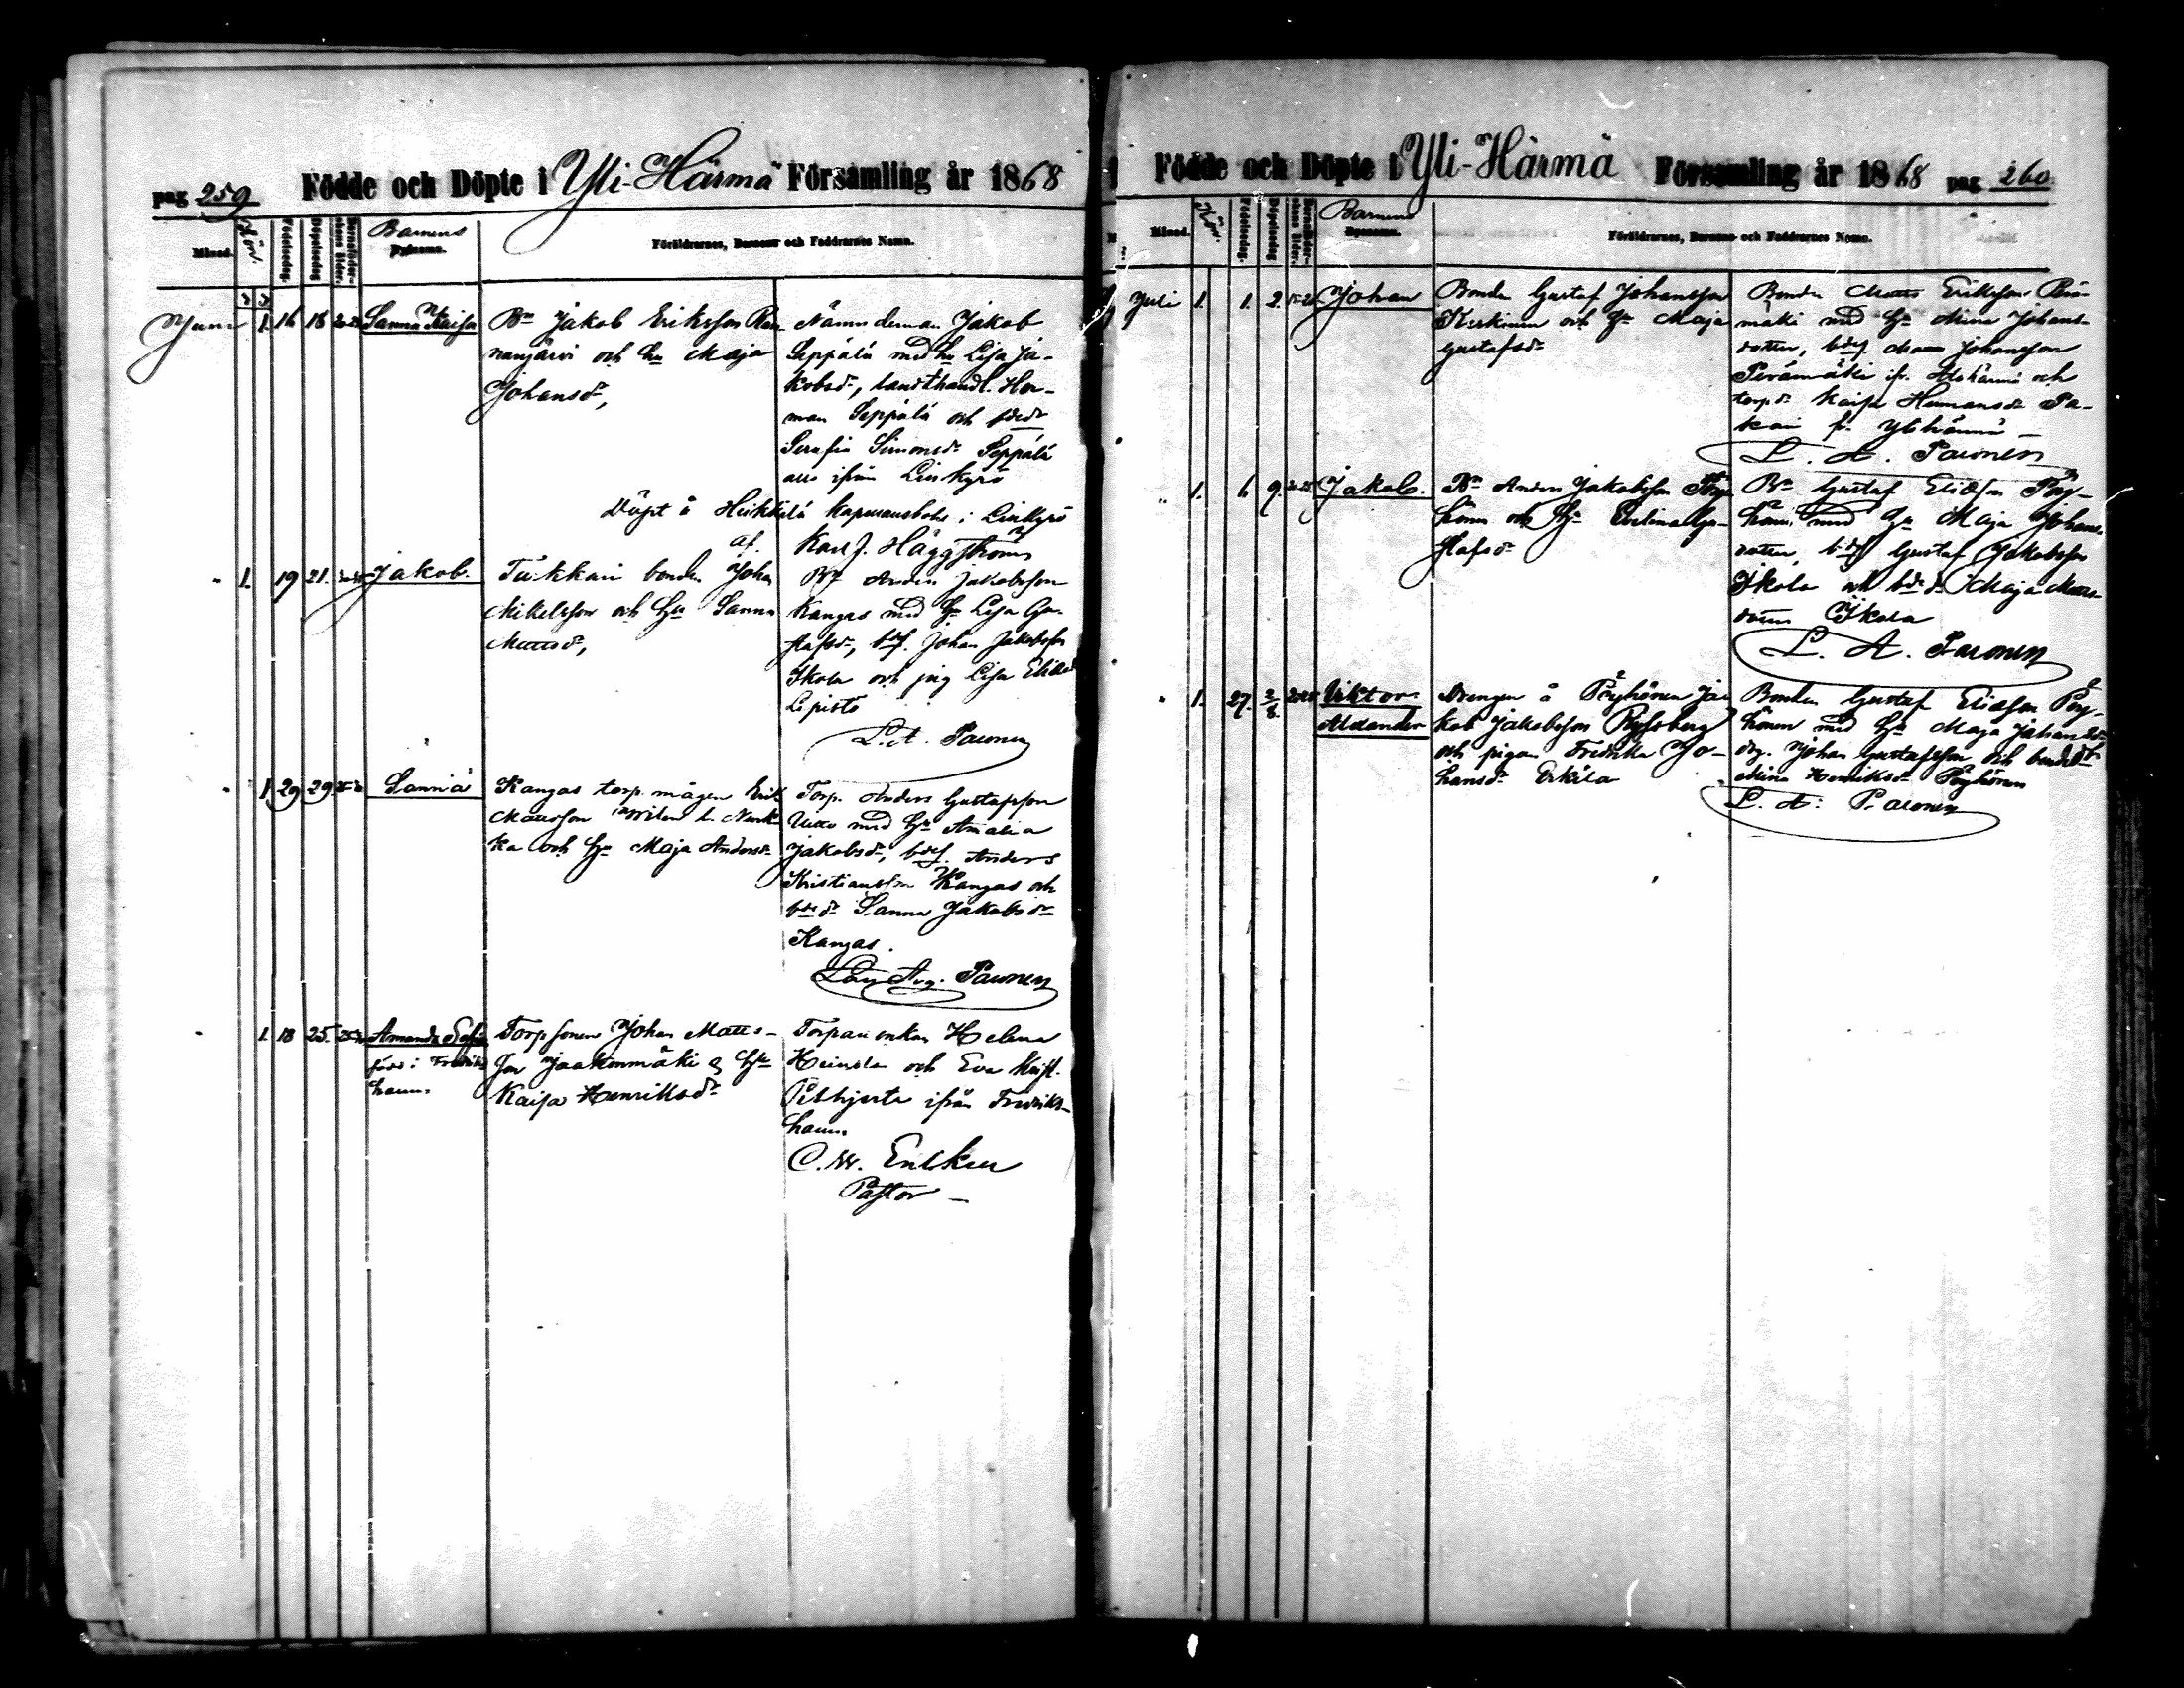 pag 259 Födde och Döpte i Yli-Härmä Församling år 1868
Månad. Kön. Födelsedag. Döpelsedag Barnens Föräldrarnes, Barnens och Faddrarnes Namn.
Juni 1. 16 18 Sanna Kaisa
Bn Jakob Eriksson
nanjärvi och hu Maja
Johansdr,
Nämndeman Jakob
Seppälä med hu Lisa Ja-
kobsdr, landthandl. Her-
man Seppälä och
Serafia Simonsdr Seppälä
ifrån
Döpt å Heikkilä i
af. Karl J. Häggström
1. 19 21. Jakob.
Tukkari bonden Johan
Mikelsson och hu Sanna
Mattsdr,
Bn Anders Jakobsson
Kangas med hu Lisa Gu-
stafsdr, bdes. Johan Jakobsson
Ikola och pig Lisa
Lepistö
L. A. Paronen
1. 29 29 Sanna
Kangas torp. mågen Erik
Mattsson
ka och hu Maja Andersdr
Torp. Anders Gustafsson
med hu Amalia
Jakobsdr, bdes. Anders
Kristiansson Kangas och
bdedr Sanna Jakobsdr
Kangas.
Paronen
1. 18 25. Amanda Sofia
född i Fredriks
hamn.
Torpsonen Johan Matts-
son Jaakonmäki & hu
Kaisa Henriksdr
Torpareenkan Helena
och Eva Krist.
ifrån Fredriks-
hamn.
C. W.
Pastor
Födde och Döpte i Yli-Härmä Församling år 1868 pag 260
Månad. Kön. Födelsedag. Döpelsedag Barnens Föräldrarnes, Barnens och Faddrarnes Namn.
Juli 1. 1. 2. Johan
Bonden Gustaf Johansson
Keskinen och hu Maja
Gustafsdr
Bonden Matts Eriksson Perä-
mäki med hu Mina Johans-
dotter, bdes. Johansson
Perämäki ifr. Alahärmä och
torpdr Kaisa Hermansdr Pa-
kari fr. Ylihärmä
L. A. Paronen
1. 6 9. Jakob.
Bn Anders Jakobsson Pöy
hönen och hu Evelina Gu-
stafsdr
Bn Gustaf Eliasson Pöy-
hönen med hu Maja Johans
dotter, bdes Gustaf Jakobsson
Ikola och bdedr Maja Matts-
dotter Ikola
L. A. Paronen
1. 27. 2/8. Viktor
Alexander
Drengen å Pöyhönen Ja
kob Jakobsson
och pigan Fredrika Jo-
hansdr Erkila
Bonden Gustaf Eliasson Pöy-
hönen med hu Maja Johansdr
drg. Johan Gustafsson och
Mina Henriksdr Pöyhönen
L. A. Paronen